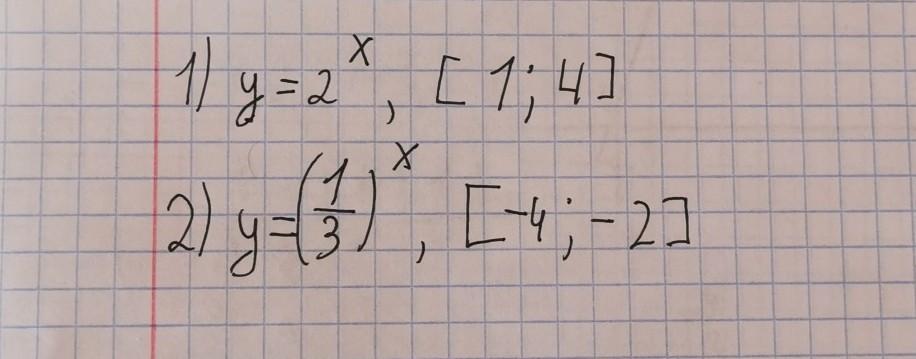 1) y = 2^x, [1; 4]
2) y = (1/3)^x, [-4; -2]